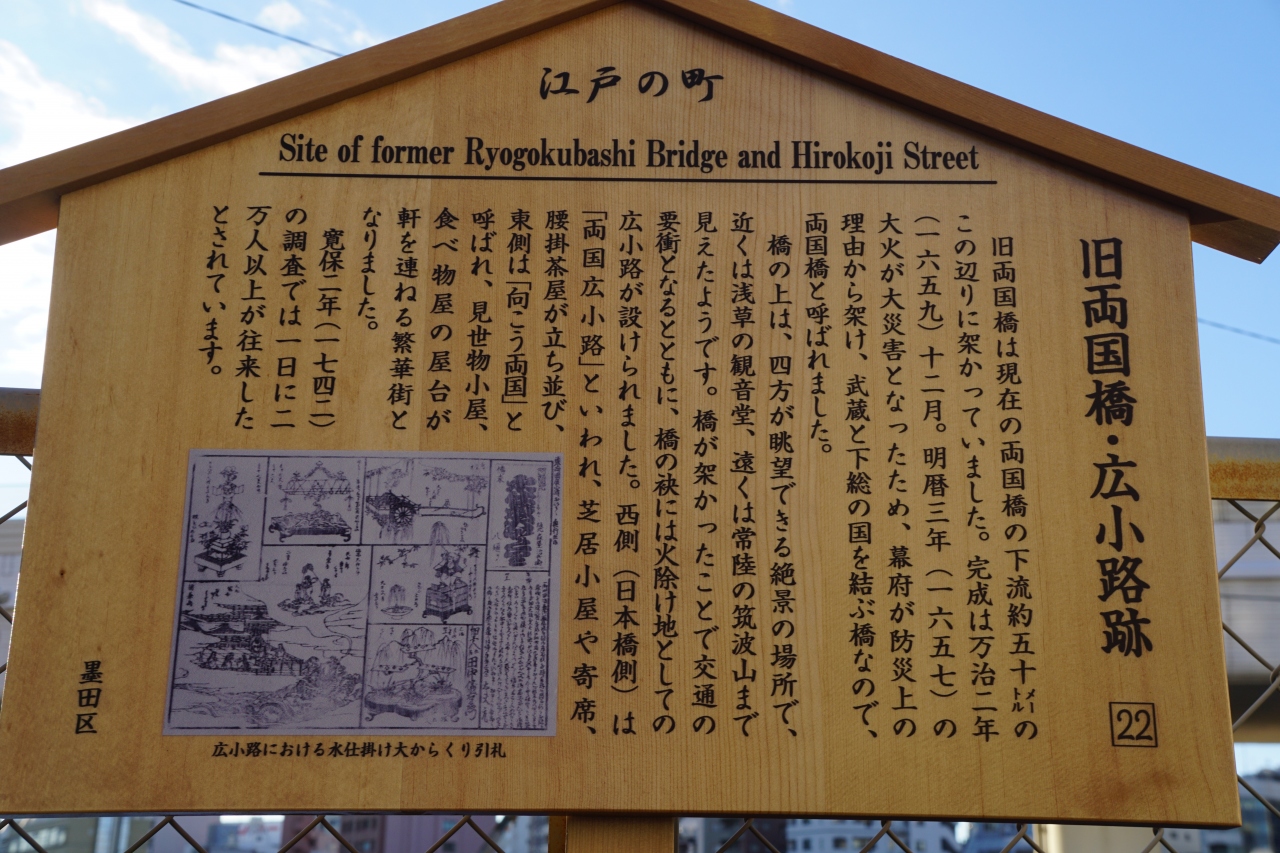 江戸の町
Site of former Ryogokubashi Bridge and Hirokoji Street
旧両国橋・広小路跡
22
旧両国橋は現在の両国橋の下流約五十メートルの
この辺りに架かっていました。完成は万治二年
(一六五九)十二月。明暦三年(一六五七)の
大火が大災害となったため、幕府が防災上の
理由から架け、武蔵と下総の国を結ぶ橋なので、
両国橋と呼ばれました。
橋の上は、四方が眺望できる絶景の場所で、
近くは浅草の観音堂、遠くは常陸の筑波山まで
見えたようです。橋が架かったことで交通の
要衝となるとともに、橋の袂には火除け地としての
広小路が設けられました。西側(日本橋側)は
「両国広小路」といわれ、芝居小屋や寄席、
腰掛茶屋が立ち並び、
東側は「向こう両国」と
呼ばれ、見世物小屋、
食べ物屋の屋台が
軒を連ねる繁華街と
なりました。
寛保二年(一七四二)
の調査では一日に二
万人以上が往来した
とされています。
広小路における水仕掛け大からくり引札
墨田区